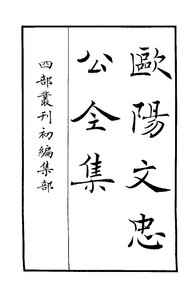 歐陽文忠
公全集
四部叢刊初編集部